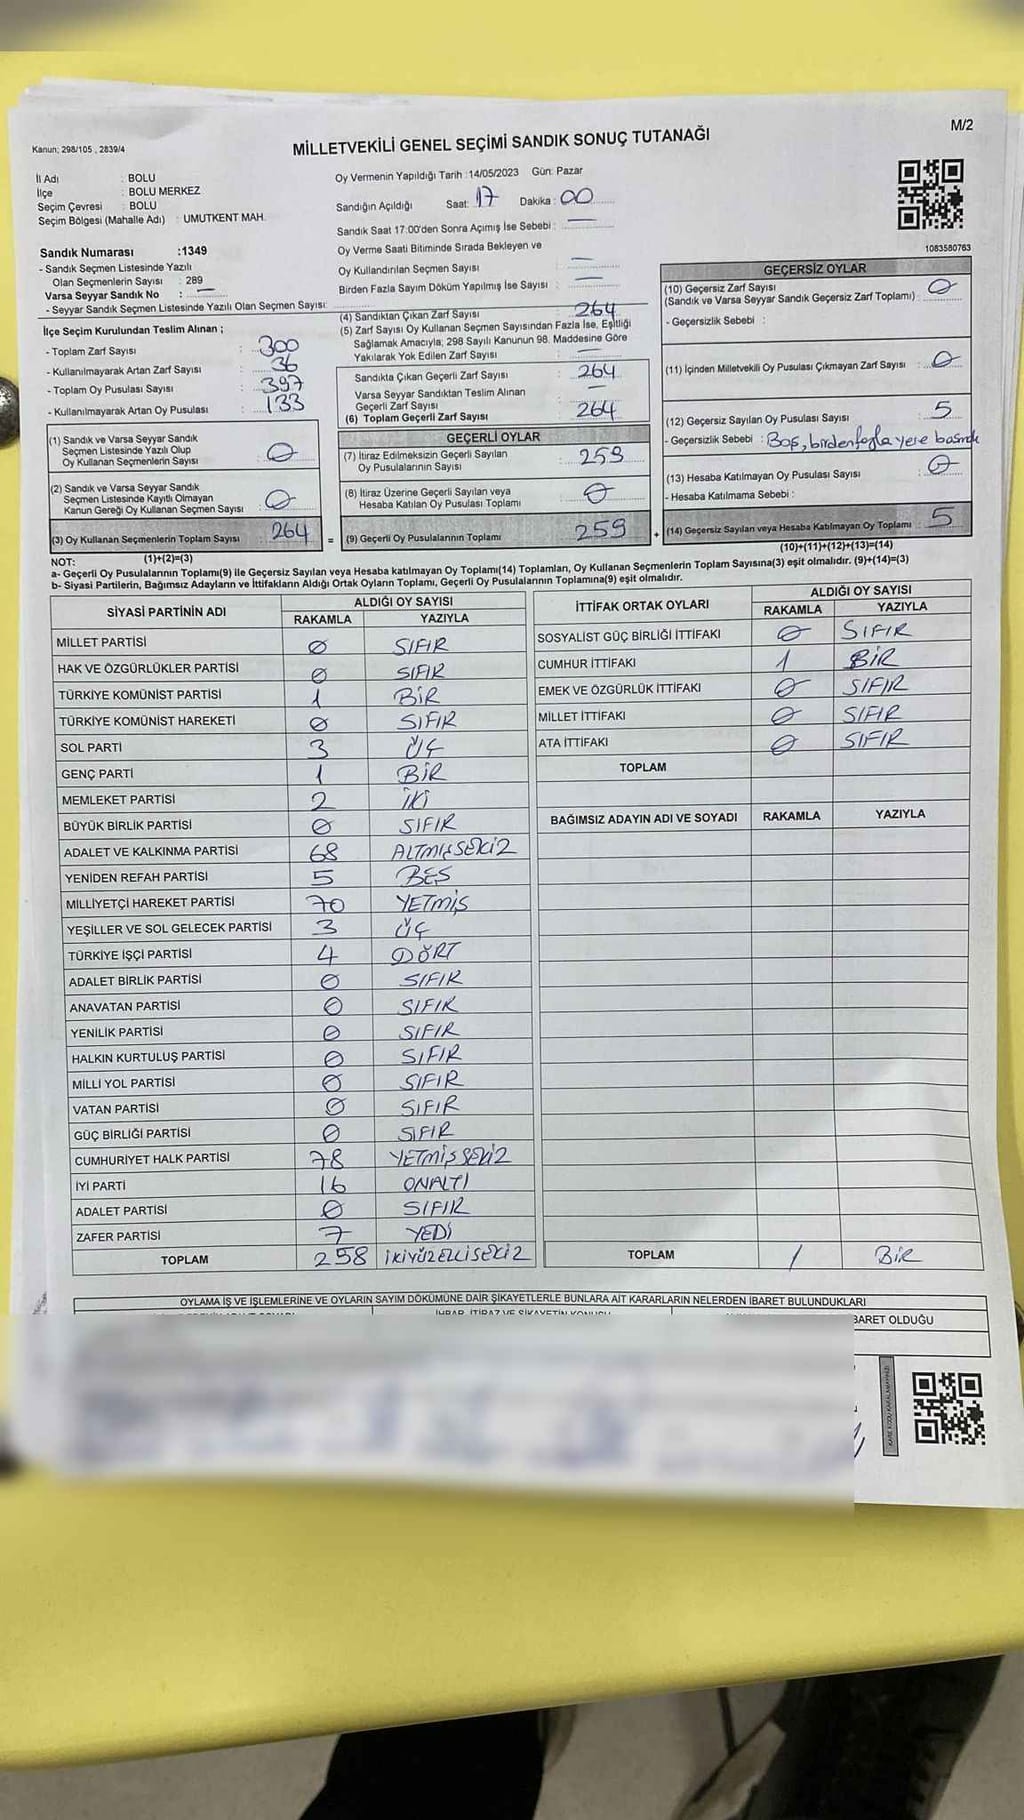 M/2
Kanun; 298/105 , 2839/4
MİLLETVEKİLİ GENEL SEÇİMİ SANDIK SONUÇ TUTANAĞI
İl Adı : BOLU
İlçe : BOLU MERKEZ
Seçim Çevresi : BOLU
Seçim Bölgesi (Mahalle Adı) : UMUTKENT MAH.
Oy Vermenin Yapıldığı Tarih :14/05/2023 Gün: Pazar
Sandığın Açıldığı Saat: 17 Dakika : 00
Sandık Saat 17:00'den Sonra Açımış İse Sebebi : —
Oy Verme Saati Bitiminde Sırada Bekleyen ve
Oy Kullandırılan Seçmen Sayısı —
Birden Fazla Sayım Döküm Yapılmış İse Sayısı : —
1083580763
Sandık Numarası :1349
- Sandık Seçmen Listesinde Yazılı
Olan Seçmenlerin Sayısı : 289
Varsa Seyyar Sandık No : —
- Seyyar Sandık Seçmen Listesinde Yazılı Olan Seçmen Sayısı:
İlçe Seçim Kurulundan Teslim Alınan ;
- Toplam Zarf Sayısı : 300
- Kullanılmayarak Artan Zarf Sayısı : 36
- Toplam Oy Pusulası Sayısı : 397
- Kullanılmayarak Artan Oy Pusulası : 133
(1) Sandık ve Varsa Seyyar Sandık
Seçmen Listesinde Yazılı Olup
Oy Kullanan Seçmenlerin Sayısı : 0
(2) Sandık ve Varsa Seyyar Sandık
Seçmen Listesinde Kayıtlı Olmayan
Kanun Gereği Oy Kullanan Seçmen Sayısı : 0
(3) Oy Kullanan Seçmenlerin Toplam Sayısı 264 =
(1)+(2)=(3)
(4) Sandıktan Çıkan Zarf Sayısı : 264
(5) Zarf Sayısı Oy Kullanan Seçmen Sayısından Fazla İse, Eşitliği
Sağlamak Amacıyla; 298 Sayılı Kanunun 98. Maddesine Göre
Yakılarak Yok Edilen Zarf Sayısı : —
Sandıkta Çıkan Geçerli Zarf Sayısı : 264
Varsa Seyyar Sandıktan Teslim Alınan
Geçerli Zarf Sayısı : —
(6) Toplam Geçerli Zarf Sayısı : 264
GEÇERLİ OYLAR
(7) İtiraz Edilmeksizin Geçerli Sayılan
Oy Pusulalarının Sayısı : 259
(8) İtiraz Üzerine Geçerli Sayılan veya
Hesaba Katılan Oy Pusulası Toplamı : 0
(9) Geçerli Oy Pusulalarının Toplamı 259 +
GEÇERSİZ OYLAR
(10) Geçersiz Zarf Sayısı
(Sandık ve Varsa Seyyar Sandık Geçersiz Zarf Toplamı) : 0
- Geçersizlik Sebebi :
(11) İçinden Milletvekili Oy Pusulası Çıkmayan Zarf Sayısı : 0
(12) Geçersiz Sayılan Oy Pusulası Sayısı : 5
- Geçersizlik Sebebi : Boş, birden fazla yere basmak
(13) Hesaba Katılmayan Oy Pusulası Sayısı : 0
- Hesaba Katılmama Sebebi :
(14) Geçersiz Sayılan veya Hesaba Katılmayan Oy Toplamı : 5
(10)+(11)+(12)+(13)=(14)
NOT:
a- Geçerli Oy Pusulalarının Toplamı(9) ile Geçersiz Sayılan veya Hesaba katılmayan Oy Toplamı(14) Toplamları, Oy Kullanan Seçmenlerin Toplam Sayısına(3) eşit olmalıdır. (9)+(14)=(3)
b- Siyasi Partilerin, Bağımsız Adayların ve İttifakların Aldığı Ortak Oyların Toplamı, Geçerli Oy Pusulalarının Toplamına(9) eşit olmalıdır.
SİYASİ PARTİNİN ADI ALDIĞI OY SAYISI
RAKAMLA YAZIYLA
MİLLET PARTİSİ 0 SIFIR
HAK VE ÖZGÜRLÜKLER PARTİSİ 0 SIFIR
TÜRKİYE KOMÜNİST PARTİSİ 1 BİR
TÜRKİYE KOMÜNİST HAREKETİ 0 SIFIR
SOL PARTİ 3 ÜÇ
GENÇ PARTİ 1 BİR
MEMLEKET PARTİSİ 2 İKİ
BÜYÜK BİRLİK PARTİSİ 0 SIFIR
ADALET VE KALKINMA PARTİSİ 68 ALTMIŞSEKİZ
YENİDEN REFAH PARTİSİ 5 BEŞ
MİLLİYETÇİ HAREKET PARTİSİ 70 YETMİŞ
YEŞİLLER VE SOL GELECEK PARTİSİ 3 ÜÇ
TÜRKİYE İŞÇİ PARTİSİ 4 DÖRT
ADALET BİRLİK PARTİSİ 0 SIFIR
ANAVATAN PARTİSİ 0 SIFIR
YENİLİK PARTİSİ 0 SIFIR
HALKIN KURTULUŞ PARTİSİ 0 SIFIR
MİLLİ YOL PARTİSİ 0 SIFIR
VATAN PARTİSİ 0 SIFIR
GÜÇ BİRLİĞİ PARTİSİ 0 SIFIR
CUMHURİYET HALK PARTİSİ 78 YETMİŞSEKİZ
İYİ PARTİ 16 ONALTI
ADALET PARTİSİ 0 SIFIR
ZAFER PARTİSİ 7 YEDİ
TOPLAM 258 İKİYÜZELLİSEKİZ
İTTİFAK ORTAK OYLARI ALDIĞI OY SAYISI
RAKAMLA YAZIYLA
SOSYALİST GÜÇ BİRLİĞİ İTTİFAKI 0 SIFIR
CUMHUR İTTİFAKI 1 BİR
EMEK VE ÖZGÜRLÜK İTTİFAKI 0 SIFIR
MİLLET İTTİFAKI 0 SIFIR
ATA İTTİFAKI 0 SIFIR
TOPLAM
BAĞIMSIZ ADAYIN ADI VE SOYADI RAKAMLA YAZIYLA
TOPLAM 1 BİR
OYLAMA İŞ VE İŞLEMLERİNE VE OYLARIN SAYIM DÖKÜMÜNE DAİR ŞİKAYETLERLE BUNLARA AİT KARARLARIN NELERDEN İBARET BULUNDUKLARI
İHBAR, İTİRAZ VE ŞİKAYETİN KONUSU
BARET OLDUĞU